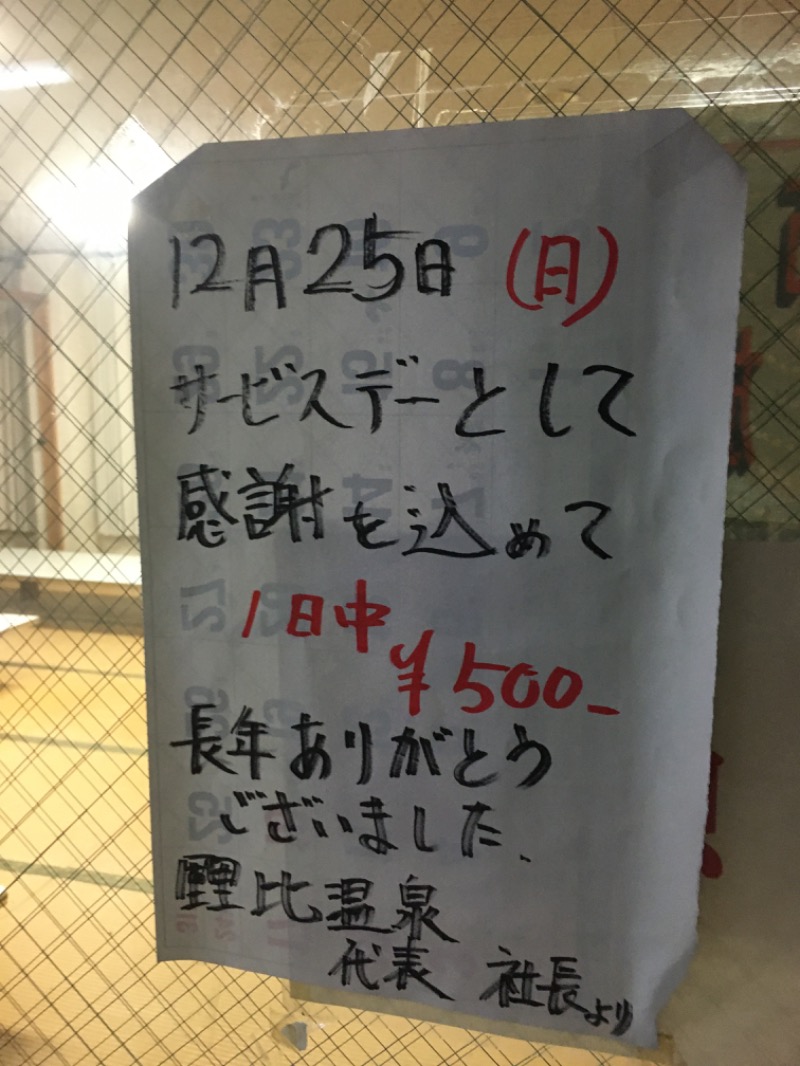 12月25日(日)
サービスデーとして
感謝を込めて
1日中
¥500-
長年ありがとう
ございました、
比温泉
代表 社長より